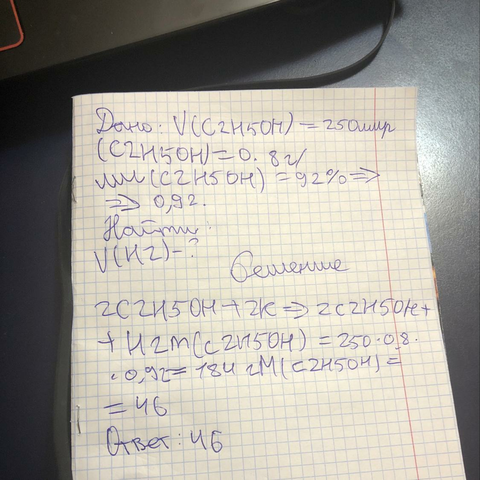 Дано: V(C2H5OH) = 250 мл р
(C2H5OH) = 0.8 г/
мл (C2H5OH) = 92% =>
=> 0,92.
Найти:
V(H2) - ?
Решение
2C2H5OH + 2K => 2C2H5OK +
+ H2 m(C2H5OH) = 250 · 0,8 ·
· 0,92 = 184 г M(C2H5OH) =
= 46
Ответ: 46